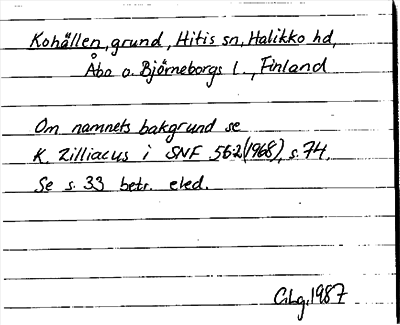 Kohällen, grund, Hitis sn, Halikko hd,
Åbo o. Björneborgs l., Finland
Om namnets bakgrund se
K. Zilliacus i SNF 56:2 (1968), s. 74.
Se s. 33 betr. eled.
GLg. 1987